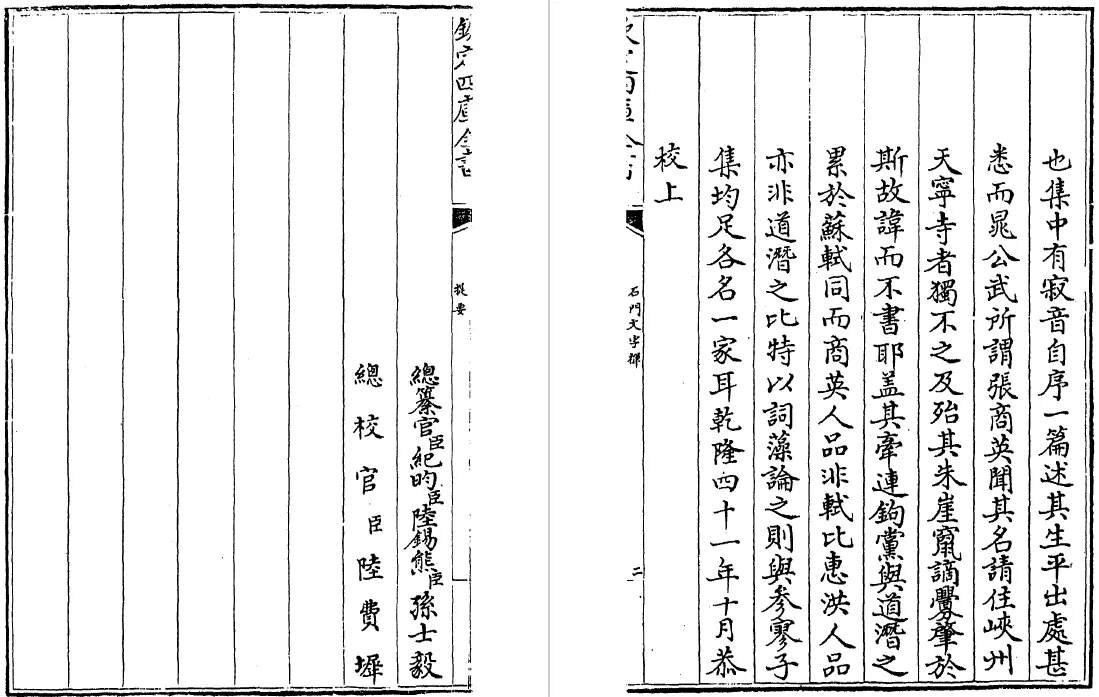 也集中有寂音自序一篇述其生平出處甚
悉而晁公武所謂張商英聞其名請住峽州
天寧寺者獨不之及殆其朱崖竄謫釁肇於
斯故諱而不書耶盖其牽連鉤黨與道潛之
累於蘇軾同而商英人品非軾比惠洪人品
亦非道潛之比特以詞藻論之則與參寥子
集均足各名一家耳乾隆四十一年十月恭
校上
石門文字禪
二
欽定四庫全書
提要
總纂官臣紀昀臣陸錫熊臣孫士毅
總校官臣陸費墀